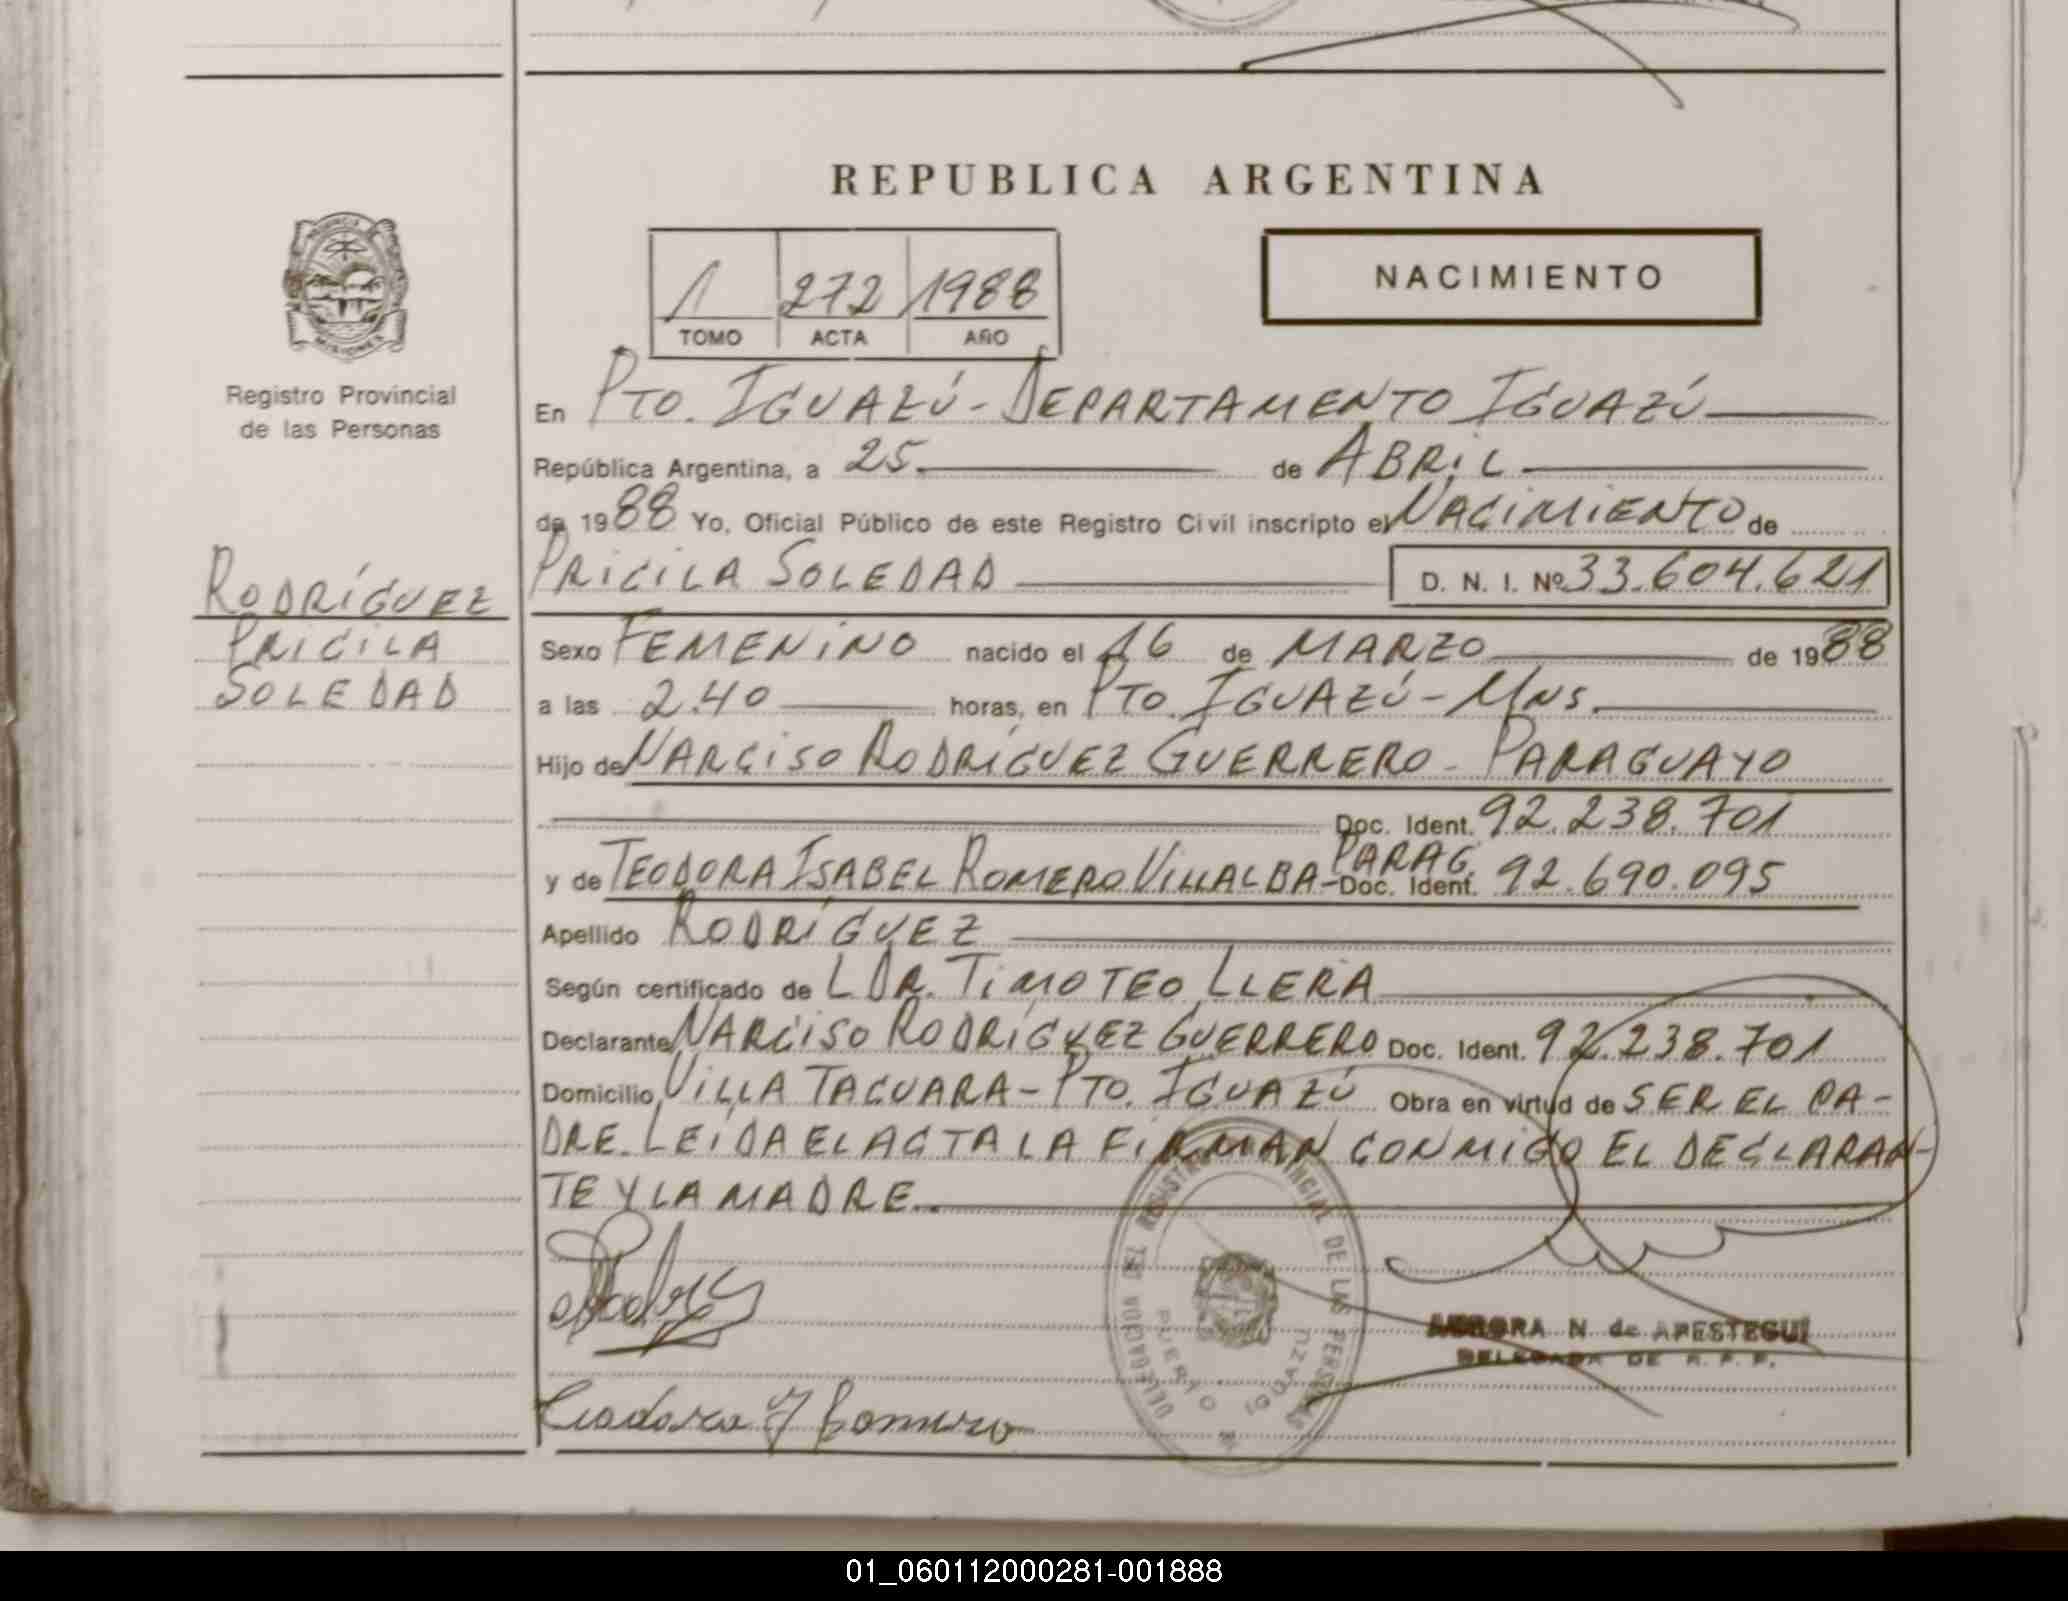 REPUBLICA ARGENTINA
PROVINCIA
MISIONES
Registro Provincial
de las Personas
1 272 1988
TOMO ACTA AÑO
NACIMIENTO
En PTO. IGUAZÚ - DEPARTAMENTO IGUAZÚ
República Argentina, a 25 de ABRIL
de 1988 Yo, Oficial Público de este Registro Civil inscripto el NACIMIENTO de
PRICILA SOLEDAD D. N. I. Nº 33.604.621
RODRÍGUEZ
PRICILA
SOLEDAD
Sexo FEMENINO nacido el 16 de MARZO de 1988
a las 2.40 horas, en PTO. IGUAZÚ - MNS.
Hijo de NARCISO RODRÍGUEZ GUERRERO - PARAGUAYO
Doc. Ident. 92.238.701
y de TEODORA ISABEL ROMERO VILLALBA - PARAG. Doc. Ident. 92.690.095
Apellido RODRÍGUEZ
Según certificado de L DR. TIMOTEO LLERA
Declarante NARCISO RODRÍGUEZ GUERRERO Doc. Ident. 92.238.701
Domicilio VILLA TACUARA - PTO. IGUAZÚ Obra en virtud de SER EL PA-
DRE. LEÍDA EL ACTA LA FIRMAN CONMIGO EL DECLARAN-
TE Y LA MADRE.
DELEGACION DEL REGISTRO PROVINCIAL DE LAS PERSONAS
PUERTO IGUAZU
AURORA N. de APESTEGUI
DELEGADA DE R. P. P.
Teodora I Romero
01_060112000281-001888